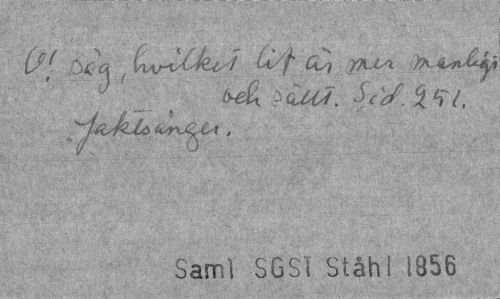 O! säg, hvilket lif är mer manligt
och sällt. Sid. 251.
Jaktsånger.
Saml SGS1 Ståhl 1856